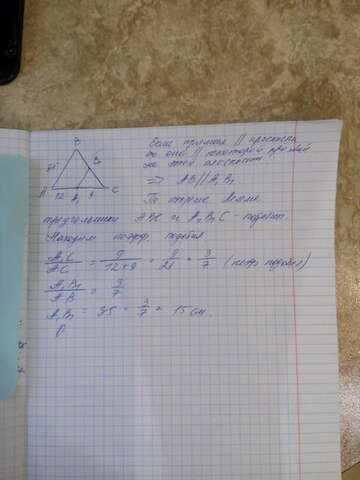 Если прямая || плоскости
то она || некоторой прямой
на этой плоскости
B
B₁
A 12 A₁ 9 C
⇒ AB || A₁B₁
По теореме
треугольники ABC и A₁B₁C - подобны
Находим коэфф. подобия
A₁C / AC = 9 / 12+9 = 9 / 21 = 3 / 7 (коэф подобия)
A₁B₁ / AB = 3 / 7
A₁B₁ = 35 · 3 / 7 = 15 см.